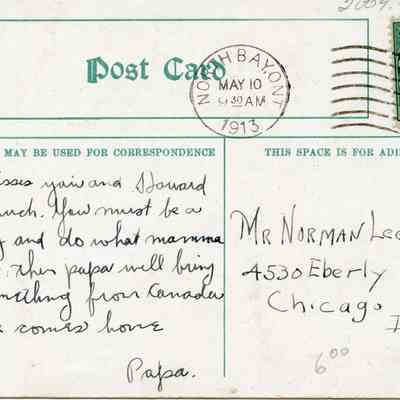 2009
Post Card
NORTH BAY, ONT
MAY 10
9 30 AM
1913
MAY BE USED FOR CORRESPONDENCE
THIS SPACE IS FOR ADD
isses you and Howard
uch. You must be a
y and do what mamma
then papa will bring
mething from Canada
e comes home
Papa.
MR NORMAN Lee
4530 Eberly
Chicago
I
6 00